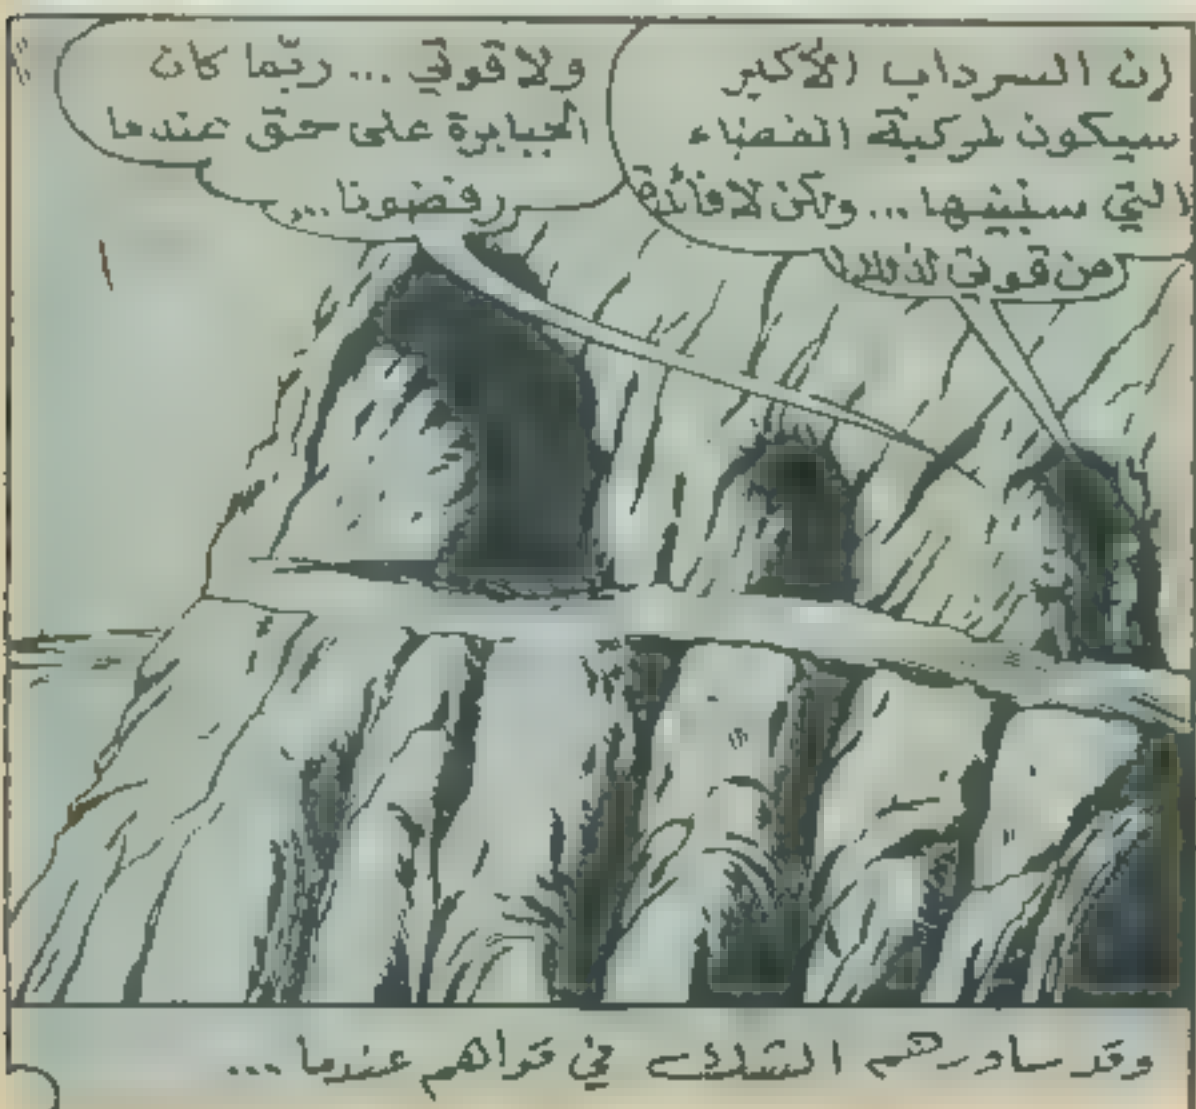 إن السرداب الأكبر
سيكون لمركبة الفضاء
التي سنبنيها... ولكن لا فائدة
من قوتي لذلك!
ولا قوتي... ربّما كان
الجبابرة على حق عندما
رفضونا...
وقد ساورهم الشك في قواهم عندما...